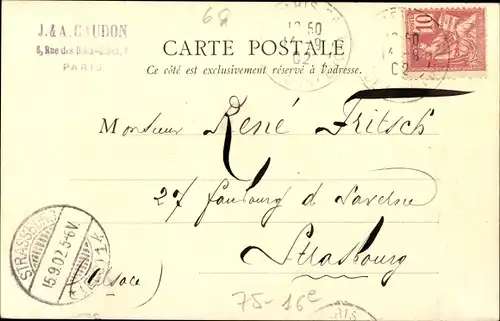 J. & A. GAUDON
6, Rue des
PARIS
69
12 50
14 9
02
10
12 50
02
CARTE POSTALE
Ce côté est exclusivement réservé à l'adresse.
Monsieur René Fritsch
27 faubourg d Saverne
Strasbourg
(Alsace)
STRASSBURG
15.9.02.5-6V.
75-16e